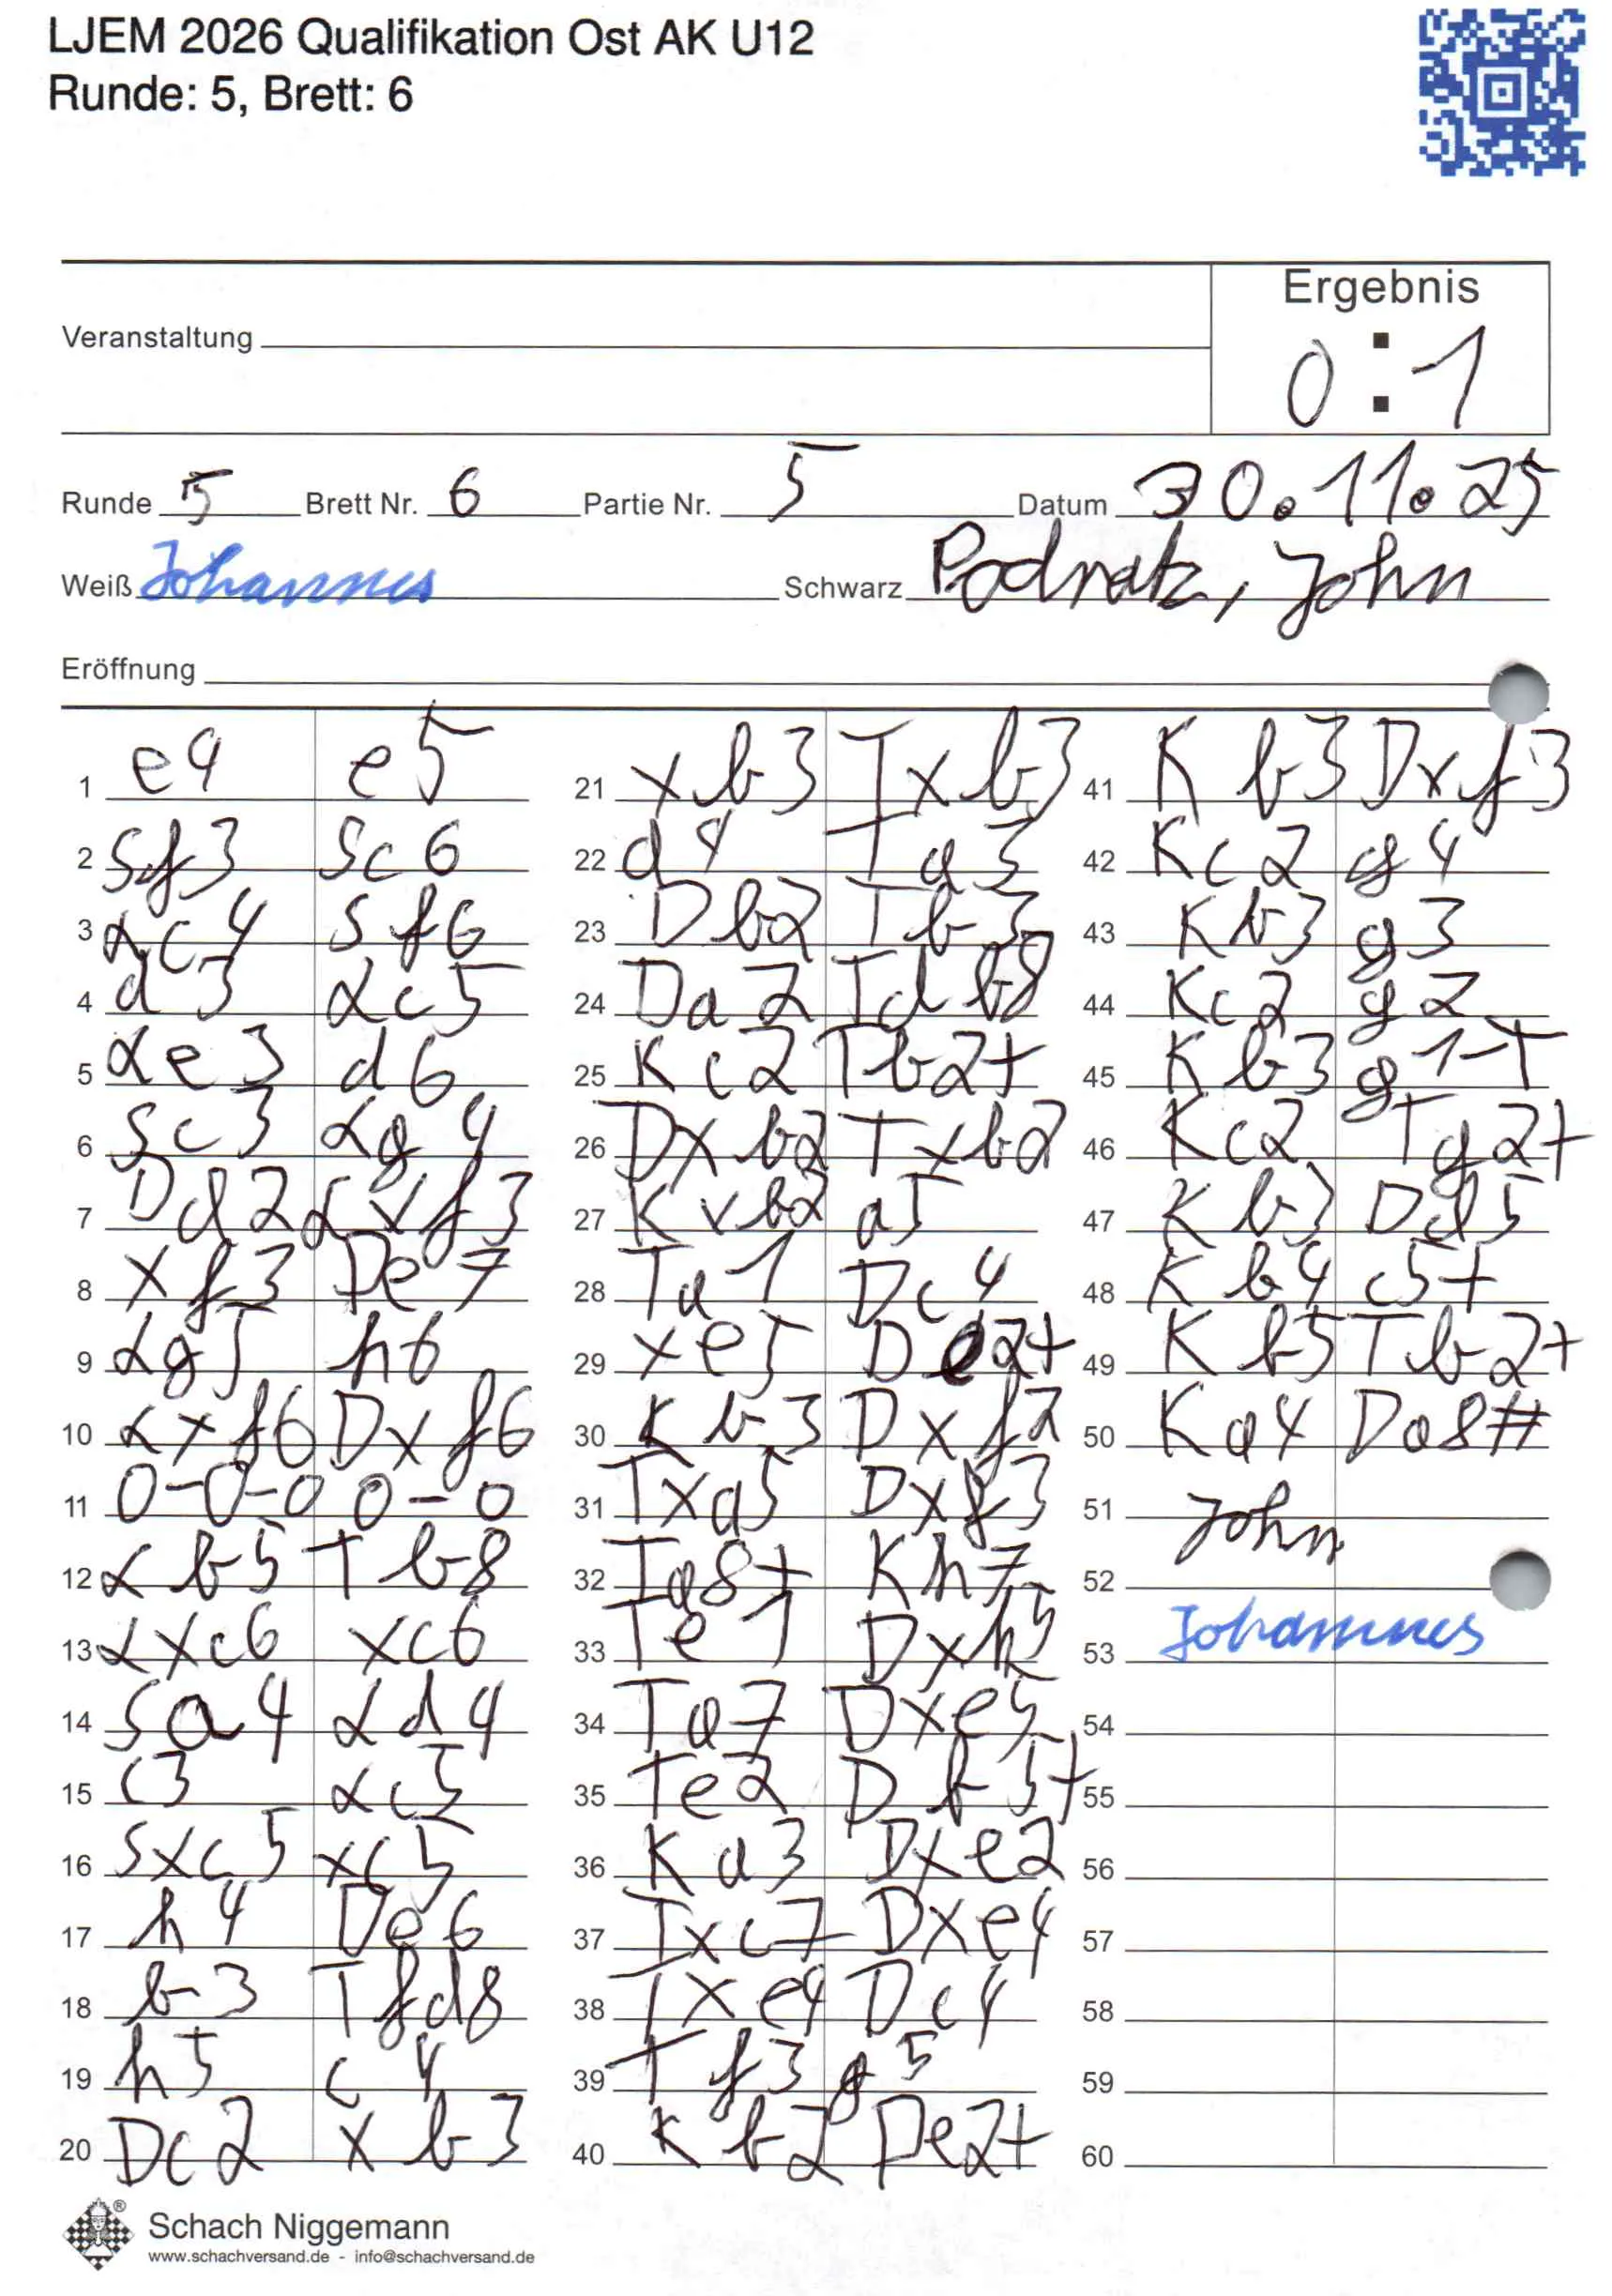 LJEM 2026 Qualifikation Ost AK U12
Runde: 5, Brett: 6
Ergebnis
0 : 1
Veranstaltung
Runde 5 Brett Nr. 6 Partie Nr. 5 Datum 30.11.25
Weiß Johannes Schwarz Podratz, John
Eröffnung
1 e4 e5
2 Sf3 Sc6
3 Lc4 Sf6
4 d3 Lc5
5 Le3 d6
6 Sc3 Lg4
7 Dd2 Lxf3
8 xf3 De7
9 Lg5 h6
10 Lxf6 Dxf6
11 0-0-0 0-0
12 Lb5 Tb8
13 Lxc6 xc6
14 Sa4 Ld4
15 c3 Lc5
16 Sxc5 xc5
17 h4 De6
18 b3 Tfd8
19 h5 c4
20 Dc2 xb3
21 xb3 Txb3
22 d4 Ta3
23 Db2 Tb3
24 Da2 Tdb8
25 Kc2 Tb2+
26 Dxb2 Txb2
27 Kxb2 a5
28 Ta1 Dc4
29 xe5 De2+
30 Kb3 Dxf2
31 Txa5 Dxf3
32 Ta8+ Kh7
33 Te1 Dxh5
34 Ta7 Dxe5
35 Te2 Db5+
36 Ka3 Dxe2
37 Txc7 Dxe4
38 Txe4 Dc4
39 Tf3 g5
40 Kb2 De2+
41 Kb3 Dxf3
42 Kc2 g4
43 Kb3 g3
44 Kc2 g2
45 Kb3 g1-T
46 Kc2 Tg2+
47 Kb3 Dd5
48 Kb4 c5+
49 Kb5 Tb2+
50 Ka4 Da8#
51 John
52
53 Johannes
54
55
56
57
58
59
60
Schach Niggemann
www.schachversand.de - info@schachversand.de